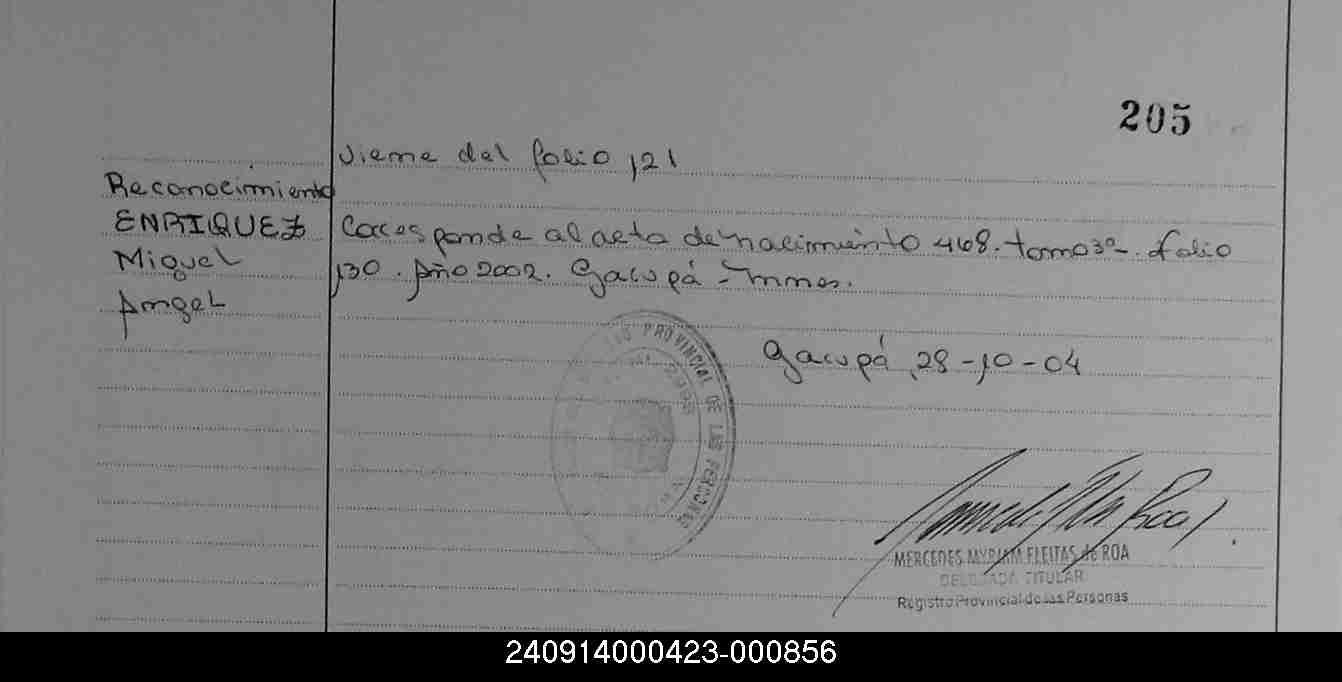 205
Viene del folio 121
Reconocimiento
ENRIQUEZ
Miguel
Angel
Corresponde al acta de nacimiento 468. tomo 3º. folio
130. Año 2002. Garupá - Mnes.
Garupá, 28-10-04
PROVINCIAL DE LAS PERSONAS
MERCEDES MYRIAM FLEITAS de ROA
DELEGADA TITULAR
Registro Provincial de las Personas
240914000423-000856